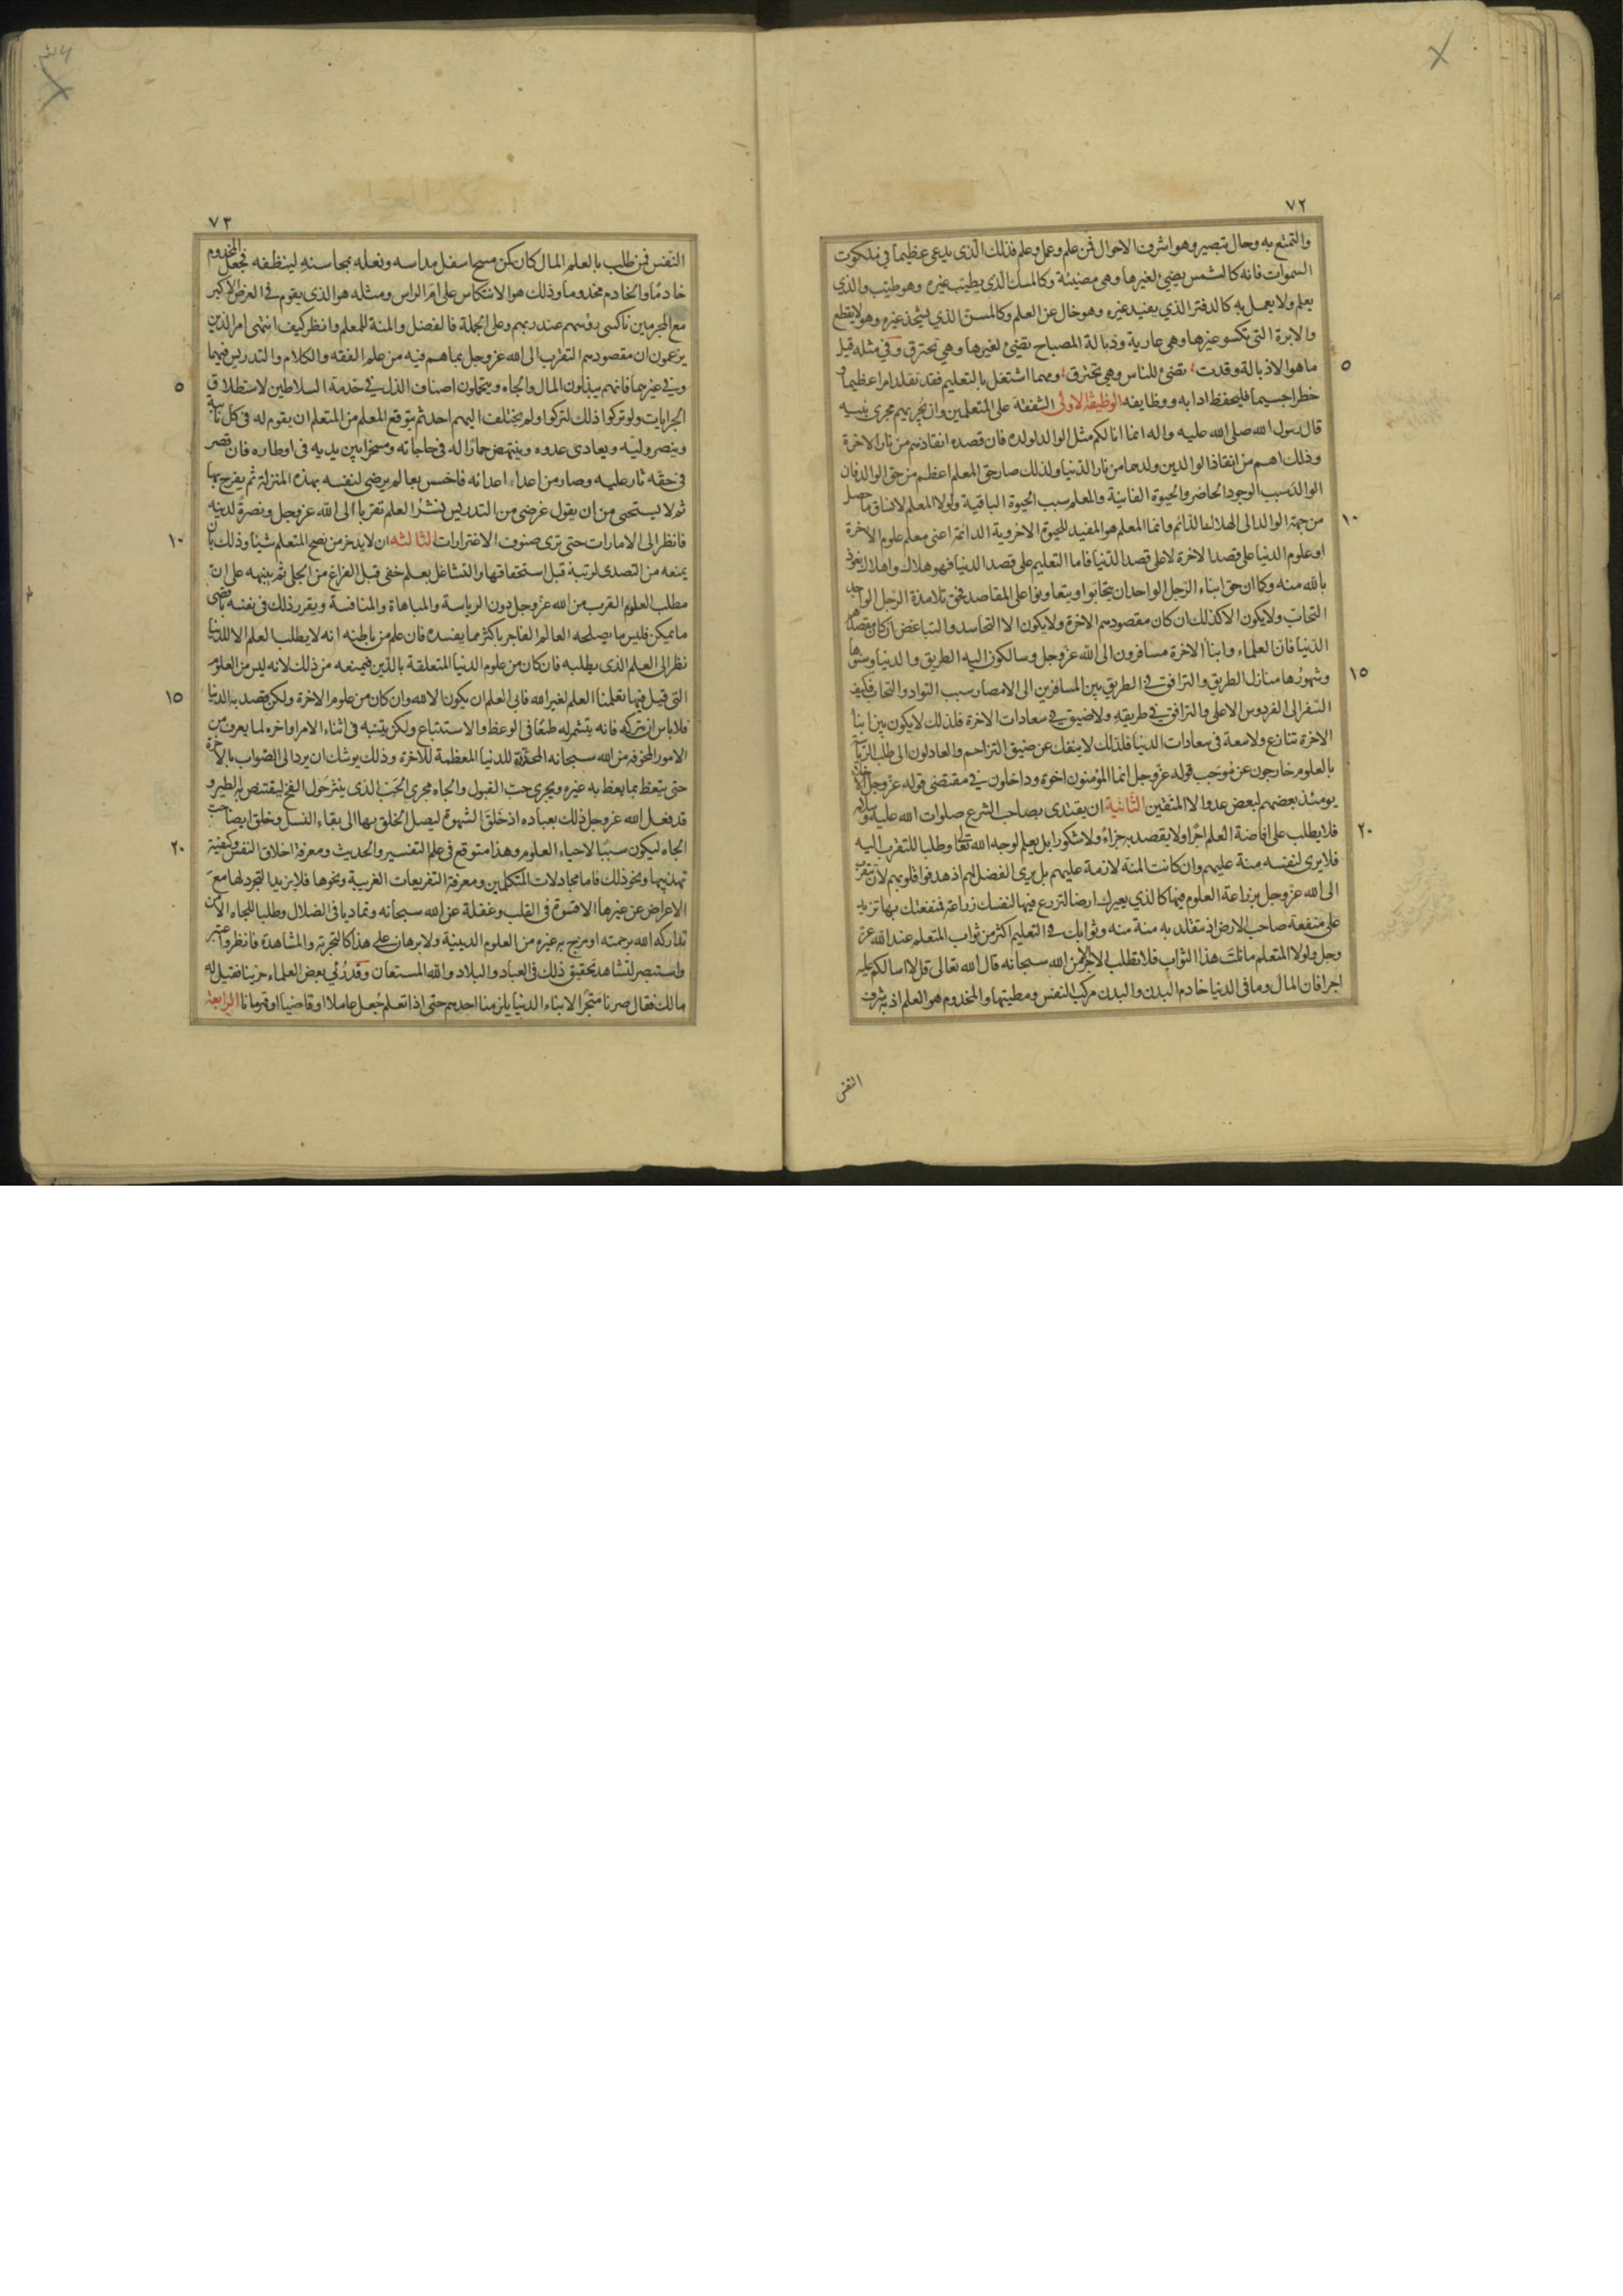 ٧٢
والتمتع به وحال تبصير وهو اشرف الاحوال فمن علم وعمل وعلم فذلك الذى يدعى عظيما في ملكوت
السموات فانه كالشمس يضيئ لغيرها وهى مضيئة وكالمسك الذى يطيب غيره وهو طيب والذي
يعلم ولا يعمل به كالدفتر الذي يفيد غيره وهو خال عن العلم وكالمسن الذي يشحذ غيره وهو لا يقطع
والابرة التى تكسو غيرها وهى عارية وذبالة المصباح تضيئ لغيرها وهى تحترق وفي مثله قيل
٥
ما هو الا ذبالة وقدت تضئ للناس وهى تحترق ومهما اشتغل بالتعليم فقد تقلد امرا عظيما و
خطرا جسيما فليحفظ ادابه ووظايفه الوظيفة الاولى الشفقة على المتعلمين وان يجريهم مجرى بنيه
قال رسول الله صلى الله عليه واله انما انا لكم مثل الوالد لولده فان قصده انقاذهم من نار الاخرة
وذلك اهم من انقاذ الوالدين ولدهما من نار الدنيا ولذلك صار حق المعلم اعظم من حق الوالد فان
الوالد سبب الوجود الحاضر والحيوة الفانية والمعلم سبب الحيوة الباقية ولولا المعلم لانساق ما حصل
١٠
من جهة الوالد الى الهلاك الدائم وانما المعلم هو المفيد للحيوة الاخروية الدائمة اعنى معلم علوم الاخرة
او علوم الدنيا على قصد الاخرة لا على قصد الدنيا فاما التعليم على قصد الدنيا فهو هلاك واهلاك نعوذ
بالله منه وكما ان حق ابناء الرجل الواحد ان يتحابوا ويتعاونوا على المقاصد فحق تلامذة الرجل الواحد
التحاب ولا يكون الا كذلك ان كان مقصودهم الاخرة ولا يكون الا التحاسد والتباغض ان كان مقصدهم
الدنيا فان العلماء وابناء الاخرة مسافرون الى الله عز وجل وسالكون اليه الطريق والدنيا وسنوها
١٥
وشهورها منازل الطريق والترافق في الطريق بين المسافرين الى الامصار سبب التواد والتحاب فكيف
السفر الى الفردوس الاعلى والترافق في طريقه ولا ضيق في سعادات الاخرة فلذلك لا يكون بين ابناء
الاخرة تنازع ولا سعة في سعادات الدنيا فلذلك لا ينفك عن ضيق التزاحم والعادلون الى طلب الرياسة
بالعلوم خارجون عن موجب قوله عز وجل انما المؤمنون اخوة وداخلون في مقتضى قوله عز وجل الاخلاء
يومئذ بعضهم لبعض عدو الا المتقين الثانية ان يقتدى بصاحب الشرع صلوات الله عليه وسلامه
٢٠
فلا يطلب على افاضة العلم اجرا ولا يقصد به جزاء ولا شكورا بل يعلم لوجه الله تعالى وطلبا للتقرب اليه
فلا يرى لنفسه منة عليهم وان كانت المنة لازمة عليهم بل يرى الفضل لهم اذ هدفوا قلوبهم لان تتقرب
الى الله عز وجل بزراعة العلوم فيها كالذي يعيرك ارضا لتزرع فيها لنفسك زراعة فمنفعتك بها تزيد
على منفعة صاحب الارض اذ تقلد به منة منه وثوابك في التعليم اكثر من ثواب المتعلم عند الله عز
وجل ولولا المتعلم ما نلت هذا الثواب فلا تطلب الاجر الا من الله سبحانه قال الله تعالى قل لا اسالكم عليه
اجرا فان المال وما فى الدنيا خادم البدن والبدن مركب النفس ومطيتها والمخدوم هو العلم اذ به شرف
النفس
٧٣
النفس فمن طلب بالعلم المال كان كمن مسح اسفل مداسه ونعله بمحاسنه لينظفه فجعل المخدوم
خادما والخادم مخدوما وذلك هو الانتكاس على ام الراس ومثله هو الذى يقوم في العرض الاكبر
مع المجرمين ناكسى رؤسهم عند ربهم وعلى الجملة فالفضل والمنة للمعلم وانظر كيف انتهى امر الدين
يزعمون ان مقصودهم التقرب الى الله عز وجل بما هم فيه من علم الفقه والكلام والتدريس فيهما
٥
وفي غيرهما فانهم يبذلون المال والجاه ويتحملون اصناف الذل في خدمة السلاطين لاستطلاق
الجرايات ولو تركوا ذلك لتركوا ولم يختلف اليهم احد ثم يتوقع المعلم من المتعلم ان يقوم له فى كل نائبة
وينصر وليه ويعادى عدوه وينتهض حمارا له فى حاجاته ومسخرا بين يديه فى اوطاره فان قصر
فى حقه ثار عليه وصار من اعداء اعدائه فاخسس بعالم يرضى لنفسه بهذه المنزلة ثم يفرح بها
ثم لا يستحيى من ان يقول غرضى من التدريس نشر العلم تقربا الى الله عز وجل ونصرة لدينه
١٠
فانظر الى الامارات حتى ترى صنوف الاغترارات الثالثه ان لا يدخر من نصح المتعلم شيئا وذلك بان
يمنعه من التصدى لرتبة قبل استحقاقها والتشاغل بعلم خفى قبل الفراغ من الجلى ثم ينبهه على ان
مطلب العلوم القرب من الله عز وجل دون الرياسة والمباهاة والمنافسة ويقرر ذلك فى نفسه باقصى
ما يمكن فليس ما يصلحه العالم الفاجر باكثر مما يفسده فان علم من باطنه انه لا يطلب العلم الا للدنيا
نظر الى العلم الذى يطلبه فان كان من علوم الدنيا المتعلقة بالدين فيمنعه من ذلك لانه ليس من العلوم
١٥
التى قيل فيها تعلمنا العلم لغير الله فابى العلم ان يكون الا لله وان كان من علوم الاخرة ولكن قصد به الدنيا
فلا باس ان يتركه فانه يتشمر له طمعا فى الوعظ والاستتباع ولكن يتنبه فى اثناء الامر واخره لما يعرف من
الامور المخوفة من الله سبحانه المحقرة للدنيا المعظمة للاخرة وذلك يوشك ان يرد الى الصواب بالاخرة
حتى يتعظ بما يعظ به غيره ويجرى حب القبول والجاه مجرى الحب الذى ينثر حول الفخ ليقتنص به الطير و
قد فعل الله عز وجل ذلك بعباده اذ خلق الشهوة ليصل الخلق بها الى بقاء النسل وخلق ايضا حب
٢٠
الجاه ليكون سببا لاحياء العلوم وهذا متوقع فى علم التفسير والحديث ومعرفة اخلاق النفس وكيفية
تهذيبها ونحو ذلك فاما مجادلات المتكلمين ومعرفة التفريعات الغريبة ونحوها فلا يزيد التجرد لها مع
الاعراض عن غيرها الا قسوة فى القلب وغفلة عن الله سبحانه وتماديا فى الضلال وطلبا للجاه الا من
تداركه الله برحمته او مزج به غيره من العلوم الدينية ولا برهان على هذا كالتجربة والمشاهدة فانظر واعتبر
واستبصر لتشاهد تحقيق ذلك فى العباد والبلاد والله المستعان وقد رئي بعض العلماء حزينا فقيل له
مالك فقال صرنا متجرا لابناء الدنيا يلزمنا احدهم حتى اذا تعلم جعل عاملا او قاضيا او قهرمانا الرابعة